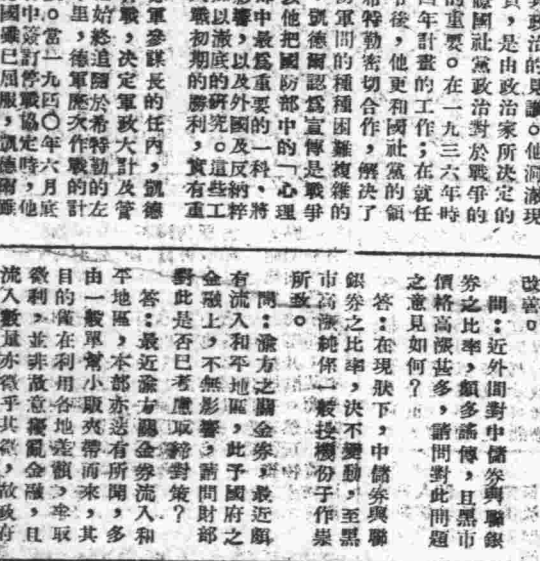 員，是由政治家所決定的
與政治的見識。他洞澈現
德國社黨政治對於戰爭的
的重要。在一九三六年時
四年計畫的工作；在就任
帝後，他更和國社黨的領
希特勒密切合作，解決了
軍間的種種困難複雜的
凱德爾認爲宣傳是戰爭
他把國防部中的「心理
中最爲重要的一科、將
影響，以及外國及反納粹
以澈底的研究。這些工
戰初期的勝利，實有重
軍參謀長的任內，凱德
戰，決定軍政大計及管
始終追隨於希特勒的左
里，德軍歷次作戰的計
。當一九四〇年六月底
中簽訂停戰協定時，他
國雖已屈服，凱德爾雖
改善。
問：近外間對中儲券與聯銀
券之比率，頗多謠傳，且黑市
價格高漲甚多，請問對此問題
之意見如何？
答：在現狀下，中儲券與聯
銀券之比率，決不變動，至黑
市高漲純係一般投機份子作祟
所致。
問：渝方之關金券，最近頗
有流入和平地區，此予國府之
金融上，不無影響，請問財部
對此是否已考慮取締對策？
答：最近渝方關金券流入和
平地區，本部亦迭有所聞，多
由一般單幫小販夾帶而來，其
目的僅在利用各地差額，牟取
微利，並非故意擾亂金融，且
流入數量亦微乎其微，故政府